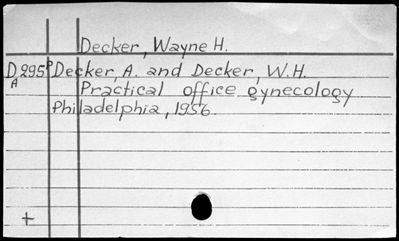 Decker, Wayne H.
D295p Decker, A. and Decker, W.H.
A Practical office gynecology
Philadelphia, 1956.
+